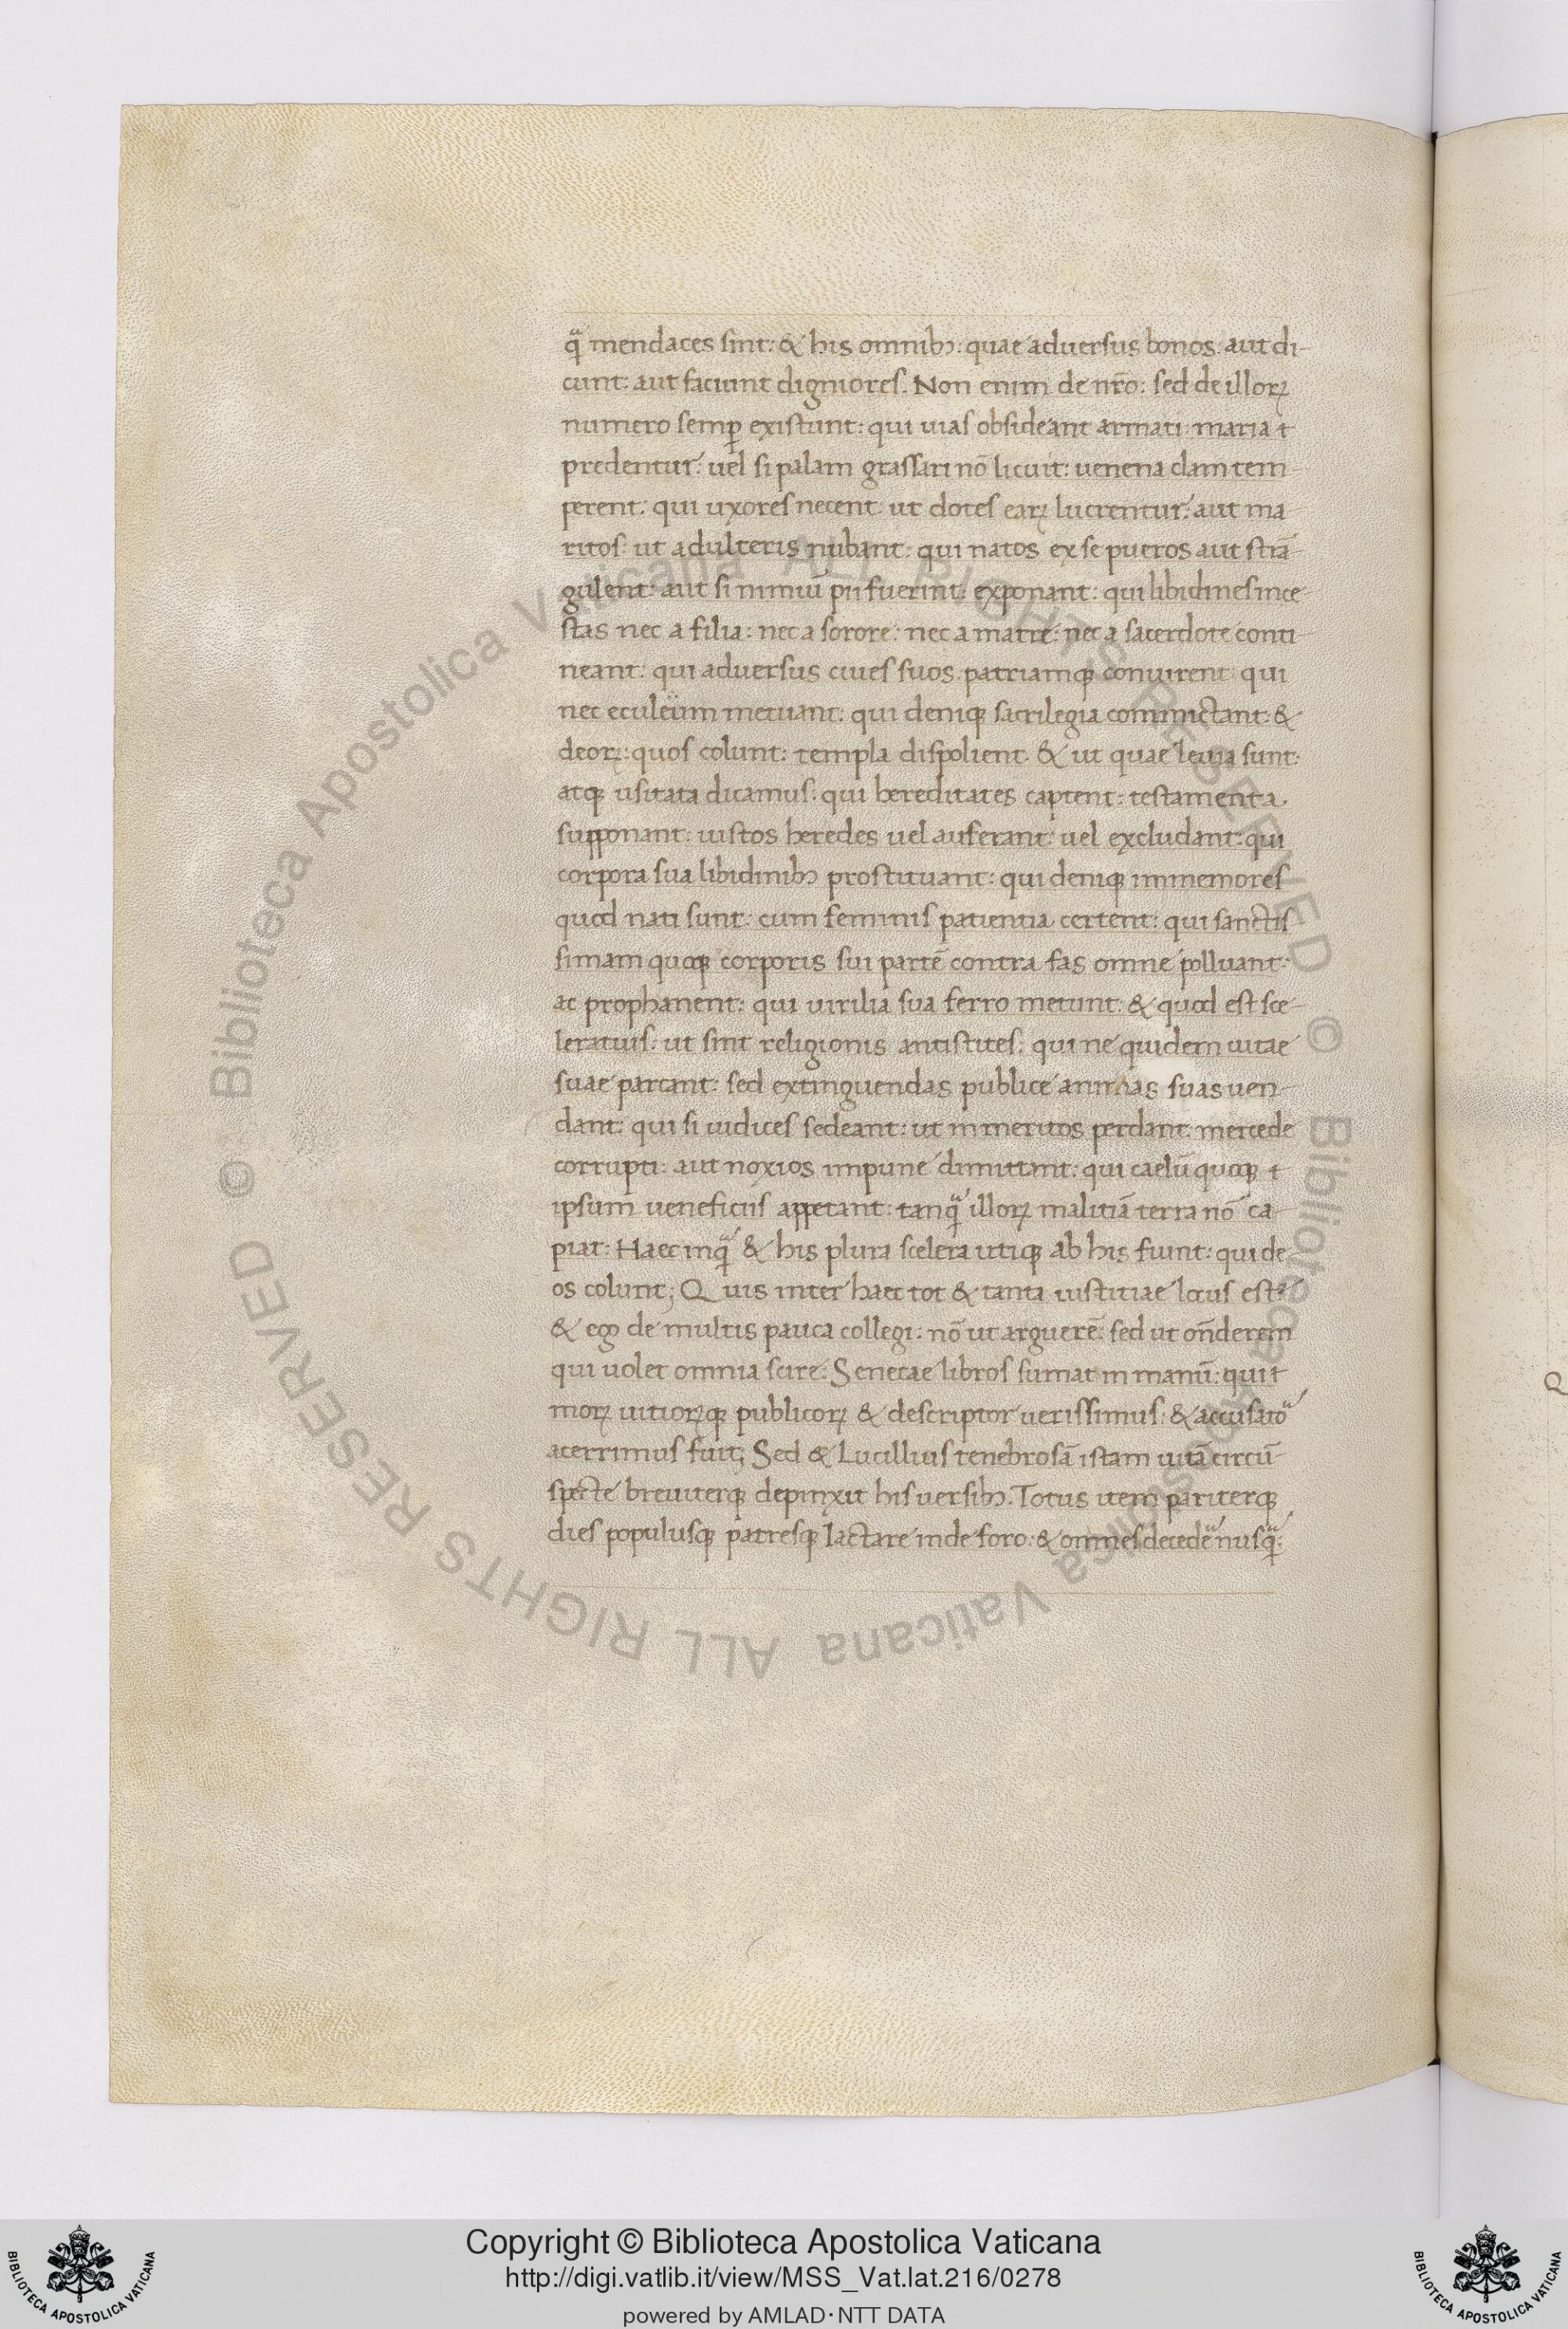 qᷓ mendaces sint: & his omnibꝫ: quae adversus bonos: aut di-
cunt: aut faciunt digniores. Non enim de nr̄o: sed de illoꝝ
numero semꝑ existunt: qui uias obsideant armati: maria
predentur: uel si palam grassari nō licuit: uenena clam tem-
perent: qui uxores necent: ut dotes eaꝝ lucrentur: aut ma-
ritos: ut adulteris nubant: qui natos ex se pueros aut strā-
gulent: aut si nimiū pii fuerint: exponant: qui libidines ince-
stas nec a filia: nec a sorore: nec a matre: nec a sacerdote conti-
neant: qui adversus ciues suos patriamqꝫ coniurent: qui
nec eculeum metuant: qui deniqꝫ sacrilegia committant: &
deoꝝ: quos colunt: templa dispolient. & ut quae leuia sunt:
atqꝫ usitata dicamus: qui hereditates captent: testamenta
supponant: iustos heredes uel auferant: uel excludant: qui
corpora sua libidinibꝫ prostituant: qui deniqꝫ immemores
quod nati sunt: cum feminis patientia certent: qui sanctis-
simam quoqꝫ corporis sui partē contra fas omne polluant:
ac prophanent: qui uirilia sua ferro metunt: & quod est sce-
leratius: ut sint religionis antistites: qui ne quidem uitae
suae parcant: sed extinguendas publice animas suas uen-
dant: qui si iudices sedeant: ut inmeritos perdant mercede
corrupti: aut noxios impune dimittant: qui caelū quoqꝫ
ipsum ueneficiis appetant: tanqᷓ illoꝝ malitiā terra nō ca-
piat: Haec inqᷓ & his plura scelera utiqꝫ ab his fiunt: qui de-
os colunt; Quis inter haec tot & tanta iustitiae locus est?
& ego de multis pauca collegi: nō ut arguerē: sed ut on̄derem
qui uolet omnia scire: Senecae libros sumat in manū: qui
moꝝ uitioꝝqꝫ publicoꝝ & descriptor uerissimus: & accusatoᷓ
acerrimus fuit; Sed & Lucillius tenebrosā istam uitā circū-
specte breuiterqꝫ depinxit his uersibꝫ. Totus item pariterqꝫ
dies populusqꝫ patresqꝫ Iactare inde foro: & omnes decedeᷓ nusqᷓ:
Copyright © Biblioteca Apostolica Vaticana
http://digi.vatlib.it/view/MSS_Vat.lat.216/0278
powered by AMLAD·NTT DATA
BIBLIOTECA APOSTOLICA VATICANA
BIBLIOTECA APOSTOLICA VATICANA
© Biblioteca Apostolica Vaticana ALL RIGHTS RESERVED © Biblioteca Apostolica Vaticana ALL RIGHTS RESERVED
Q